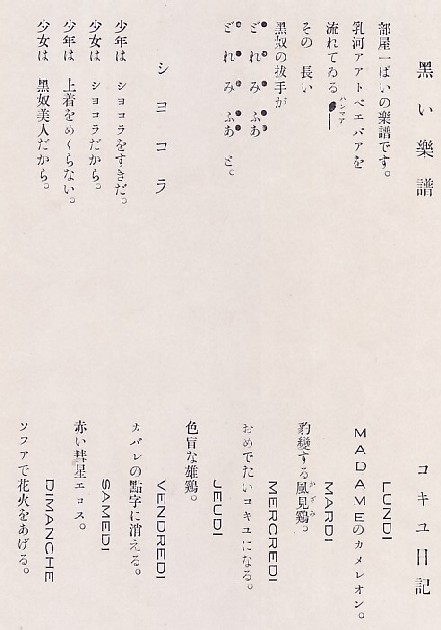 黑い樂譜
部屋一ぱいの樂譜です。
乳河アアトペエパアを
流れてゐる
ハンマア
その 長い
黑奴の拔手が
どれみふあ
どれみふあ と。
シヨコラ
少年は シヨコラをすきだ。
少女は シヨコラだから。
少年は 上着をめくらない。
少女は 黑奴美人だから。
コキユ日記
LUNDI
MADAMEのカメレオン。
MARDI
豹變する風見鷄。
かざみ
MERCREDI
おめでたいコキユになる。
JEUDI
色盲な雄鷄。
VENDREDI
カバレの點字に消える。
SAMEDI
赤い彗星エロス。
DIMANCHE
ソフアで花火をあげる。